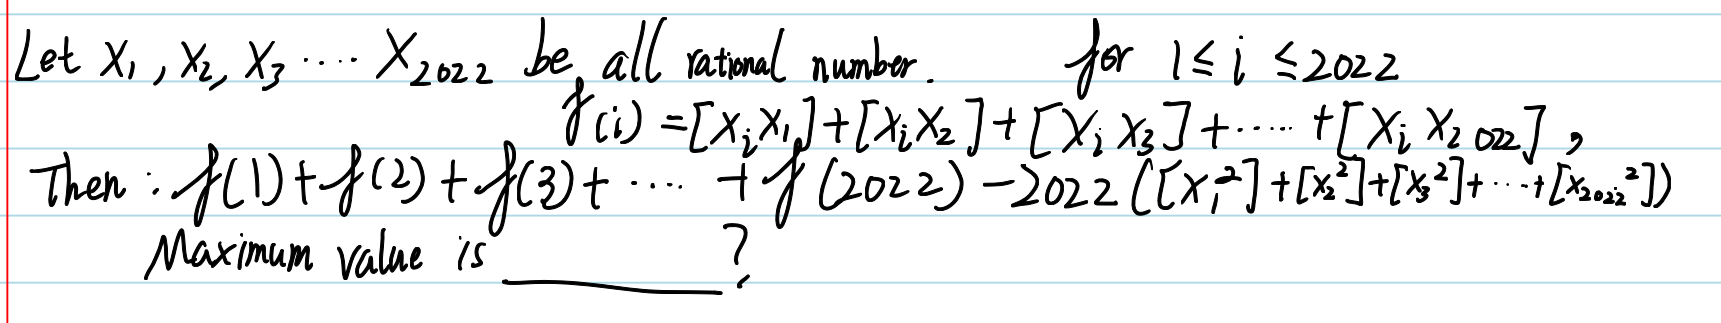 Let x₁, x₂, x₃ ⋯ x₂₀₂₂ be all rational number. for 1 ≤ i ≤ 2022
f(i) = [xᵢx₁] + [xᵢx₂] + [xᵢx₃] + ⋯ + [xᵢx₂₀₂₂],
Then : f(1) + f(2) + f(3) + ⋯ + f(2022) − 2022([x₁²] + [x₂²] + [x₃²] + ⋯ + [x₂₀₂₂²])
Maximum value is ______ ?